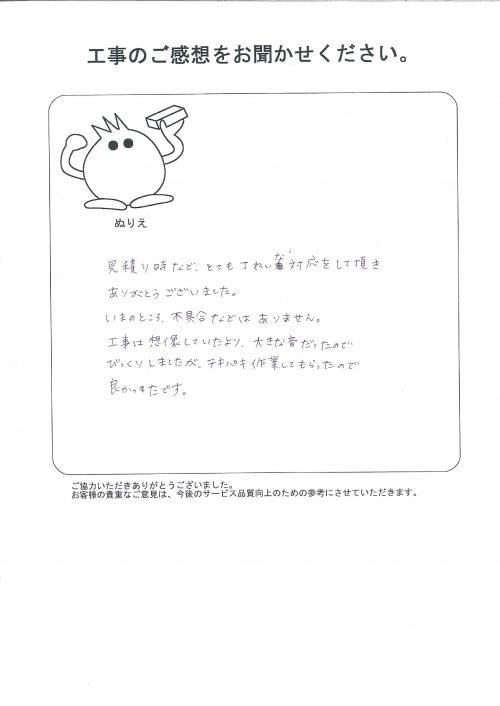 工事のご感想をお聞かせください。
ぬりえ
見積り時など、とても丁ねいな対応をして頂き
ありがとうございました。
いまのところ、不具合などはありません。
工事は想像していたより、大きな音だったので
びっくりしましたが、テキパキ作業してもらったので
良かったです。
ご協力いただきありがとうございました。
お客様の貴重なご意見は、今後のサービス品質向上のための参考にさせていただきます。